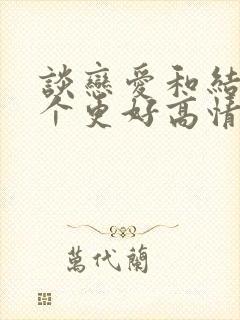 談戀愛和結
个更好高情
萬代蘭